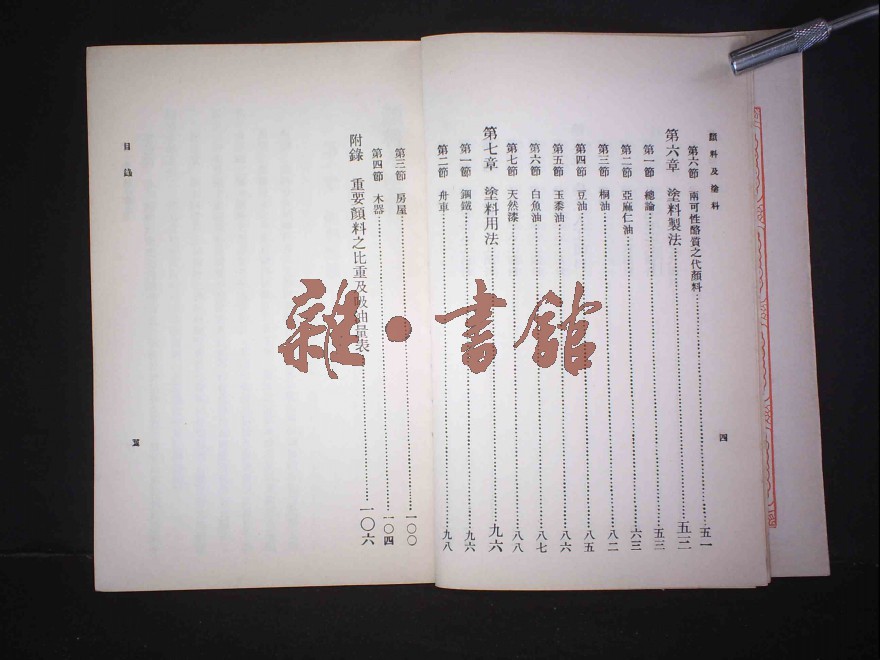 顏料及塗料
四
第六節 兩可性酪質之代顏料 五一
第六章 塗料製法 五三
第一節 總論 五三
第二節 亞麻仁油 六三
第三節 桐油 八二
第四節 豆油 八五
第五節 玉黍油 八六
第六節 白魚油 八七
第七節 天然漆 八八
第七章 塗料用法 九六
第一節 鋼鐵 九六
第二節 舟車 九八
第三節 房屋 一〇〇
第四節 木器 一〇四
附錄 重要顏料之比重及吸油量表 一〇六
目錄
雜·書館